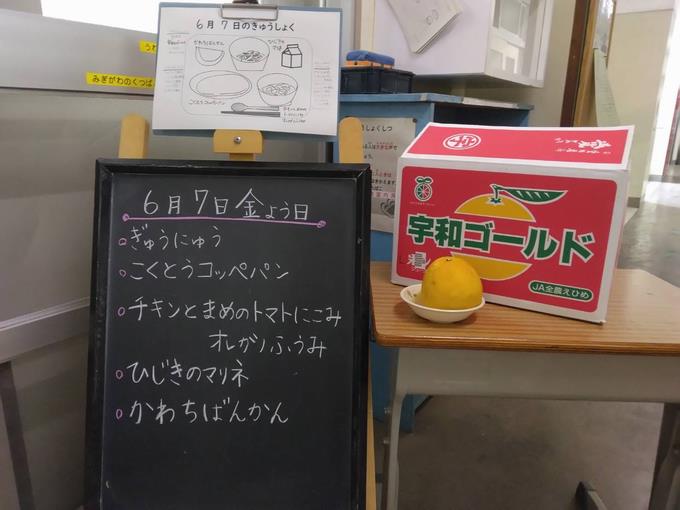 6月7日のきゅうしょく
かわちばんかん
ひじきの
こくとうコッペパン
みぎがわのくつば
6月7日金よう日
ぎゅうにゅう
こくとうコッペパン
チキンとまめのトマトにこみ
オレガノふうみ
ひじきのマリネ
かわちばんかん
宇和ゴールド
JA全農えひめ